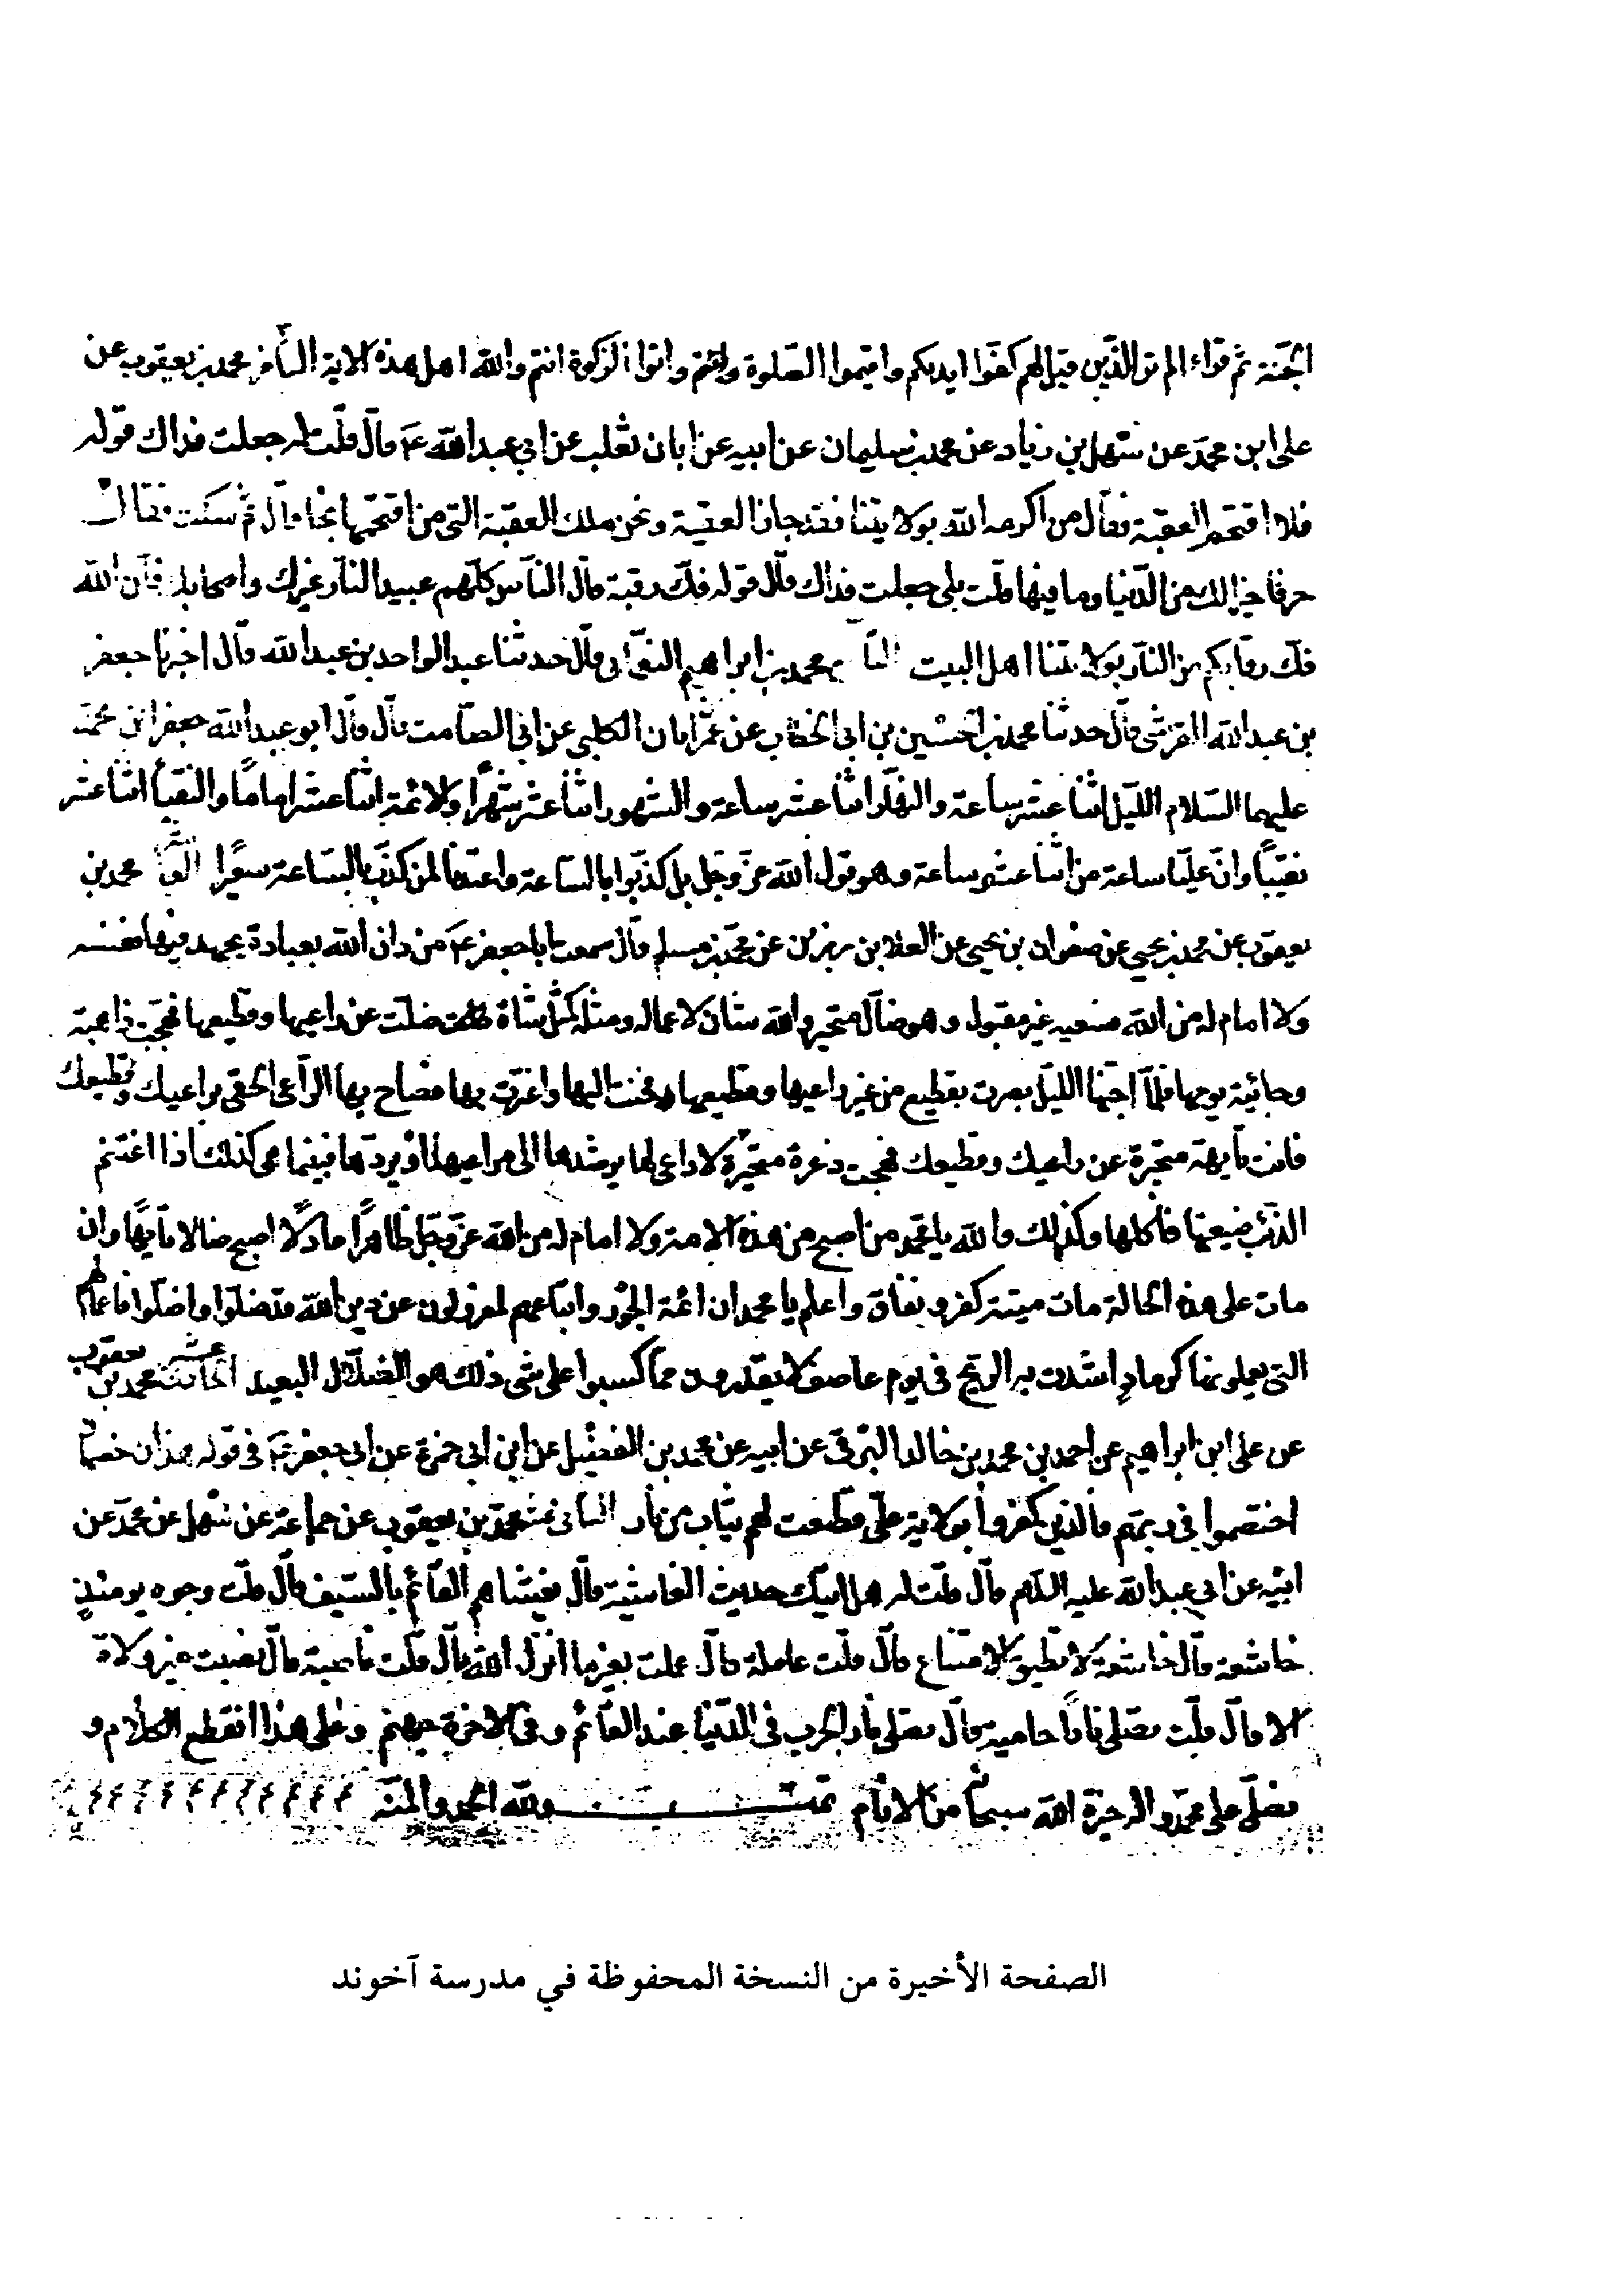 الجنة ثم قراء الم تر الى الذين قيل لهم كفوا ايديكم واقيموا الصلوة واتوا الزكوة انتم والله اهل هذه الاية محمد بن يعقوب عن
على ابن محمد عن سهل بن زياد عن محمد بن سليمان عن ابيه عن ابان تغلب عن ابي عبد الله ع قال قلت له جعلت فداك قوله
فلا اقتحم العقبة فقال من اكرمه الله بولايتنا فقد جاز العقبة ونحن تلك العقبة التى من اقتحمها نجا قال ثم سكت فقال
حرفا خير لك من الدنيا وما فيها قلت بلى جعلت فداك قال قوله فك رقبة قال الناس كلهم عبيد النار غيرك واصحابك فان الله
فك رقابكم من النار بولايتنا اهل البيت محمد بن ابراهيم النعمانى قال حدثنا عبد الواحد بن عبد الله قال اخبرنا جعفر
بن عبد الله القرشى قال حدثنا محمد بن الحسين بن ابي الخطاب عن عمر ابان الكلبى عن ابى الصامت قال قال ابو عبد الله جعفر ابن محمد
عليهما السلام الليل اثنا عشر ساعة والنهار اثنا عشر ساعة والشهور اثنا عشر شهرًا والائمة اثنا عشر اماما والنقبا اثنا عشر
نقيبًا وان عليا ساعة من اثنا عشر ساعة وهو قول الله عز وجل بل كذبوا بالساعة واعتدنا لمن كذب بالساعة سعيرًا محمد بن
يعقوب عن محمد بن يحيى عن صفوان بن يحيى عن العلا بن رزين عن محمد بن مسلم قال سمعت ابا جعفر ع من دان الله بعبادة يجهد فيها نفسه
ولا امام له من الله فسعيه غير مقبول وهو ضال متحير والله شان لاعماله ومثله كمثل شاة ضلت عن راعيها وقطيعها فهجمت ذاهبة
وجائية يومها فلما اجنها الليل بصرت بقطيع من غير راعيها وقطيعها فحنت اليها واغترت بها فصاح بها الراعى الحقى براعيك وقطيعك
فانت تايهة متحيرة عن راعيك وقطيعك فهجمت ذعرة متحيرة لا راعى لها يرشدها الى مراعيها او يردها فبينما هى كذلك اذا اغتنم
الذئب ضيعتها فاكلها وكذلك والله يا محمد من اصبح من هذه الامة ولا امام له من الله عز وجل ظاهرًا عادلًا اصبح ضالا تايهًا وان
مات على هذه الحالة مات ميتة كفر و نفاق واعلم يا محمد ان ائمة الجور واتباعهم لمعزولون عن دين الله قد ضلوا واضلوا فاعمالهم
التى يعلمونها كرماد اشتدت به الريح فى يوم عاصف لا يقدرون مما كسبوا على شى ذلك هو الضلال البعيد محمد بن يعقوب
عن على ابن ابراهيم عن احمد بن محمد بن خالد البرقى عن ابيه عن محمد بن الفضيل عن ابن ابى حمزة عن ابى جعفر ع فى قوله هذان خصمان
اختصموا فى ربهم فالذين كفروا بولاية على قطعت لهم ثياب من نار محمد بن يعقوب عن جماعة عن سهل عن محمد عن
ابيه عن ابى عبد الله عليه السلام قال قلت له هل اتيك حديث الغاشية قال يغشاهم القائم بالسيف قال قلت وجوه يومئذٍ
خاشعة قال خاشعة لا تطيق الامتناع قال قلت عاملة قال عملت بغير ما انزل الله قال قلت ناصبة قال نصبت غير ولاة
الا قال قلت تصلى نارًا حامية قال تصلى نار الحرب فى الدنيا عند القائم وفى الاخرة جهنم وعلى هذا انقطع الكلام و
نصلى على محمد واله خيرة الله من الانام تمت ولله الحمد والمنة
الصفحة الأخيرة من النسخة المحفوظة في مدرسة آخوند